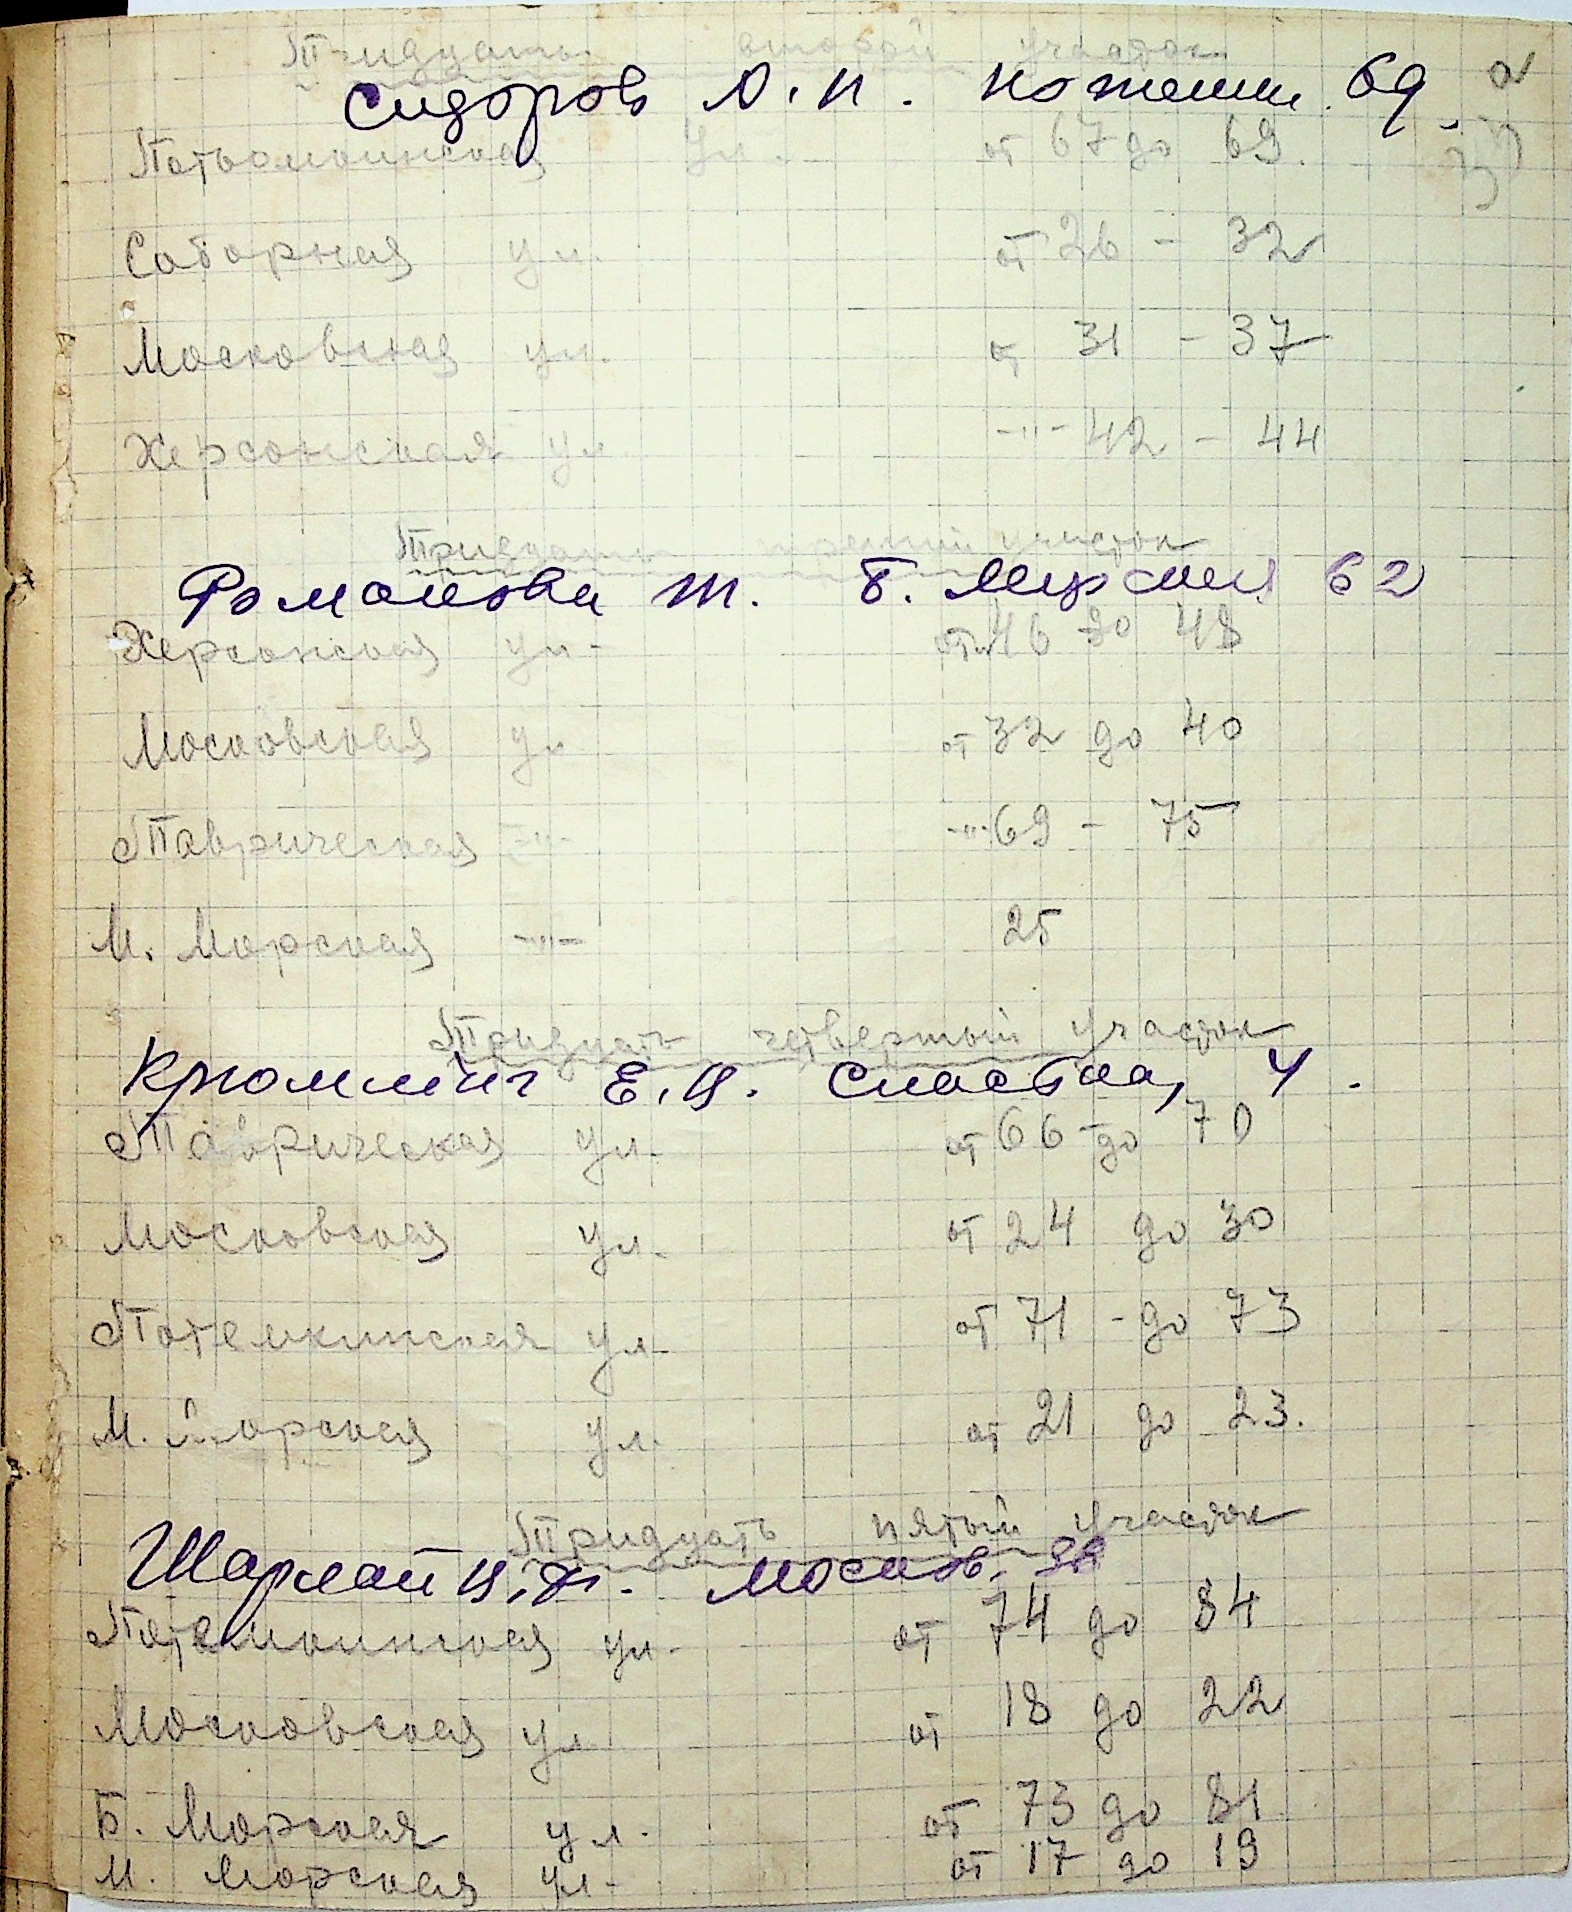 Тридцать второй участок
Сидоров А. П. Потемк. 69
Потьомкинская ул. от 67 до 69.
Соборная ул. от 26 - 32
Московская ул. от 31 - 37
Херсонская ул. -"- 42 - 44
Тридцать третий участок
Романова Т. Б. Морская 62
Херсонская ул. от 46 до 48
Московская ул от 32 до 40
Таврическая -"- -"- 69 - 75
М. Морская -"- 25
Тридцать четвертый участок
Крюмминг Е. И. Спасская, 4.
Таврическая ул. от 66 - до 70
Московская ул. от 24 до 30
Потемкинская ул. от 71 - до 73
М. Морская ул. от 21 до 23.
Тридцать пятый участок
Шарлай Москов.
Потемкинская ул. от 74 до 84
Московская ул от 18 до 22
Б. Морская ул. от 73 до 81
М. Морская ул. от 17 до 19